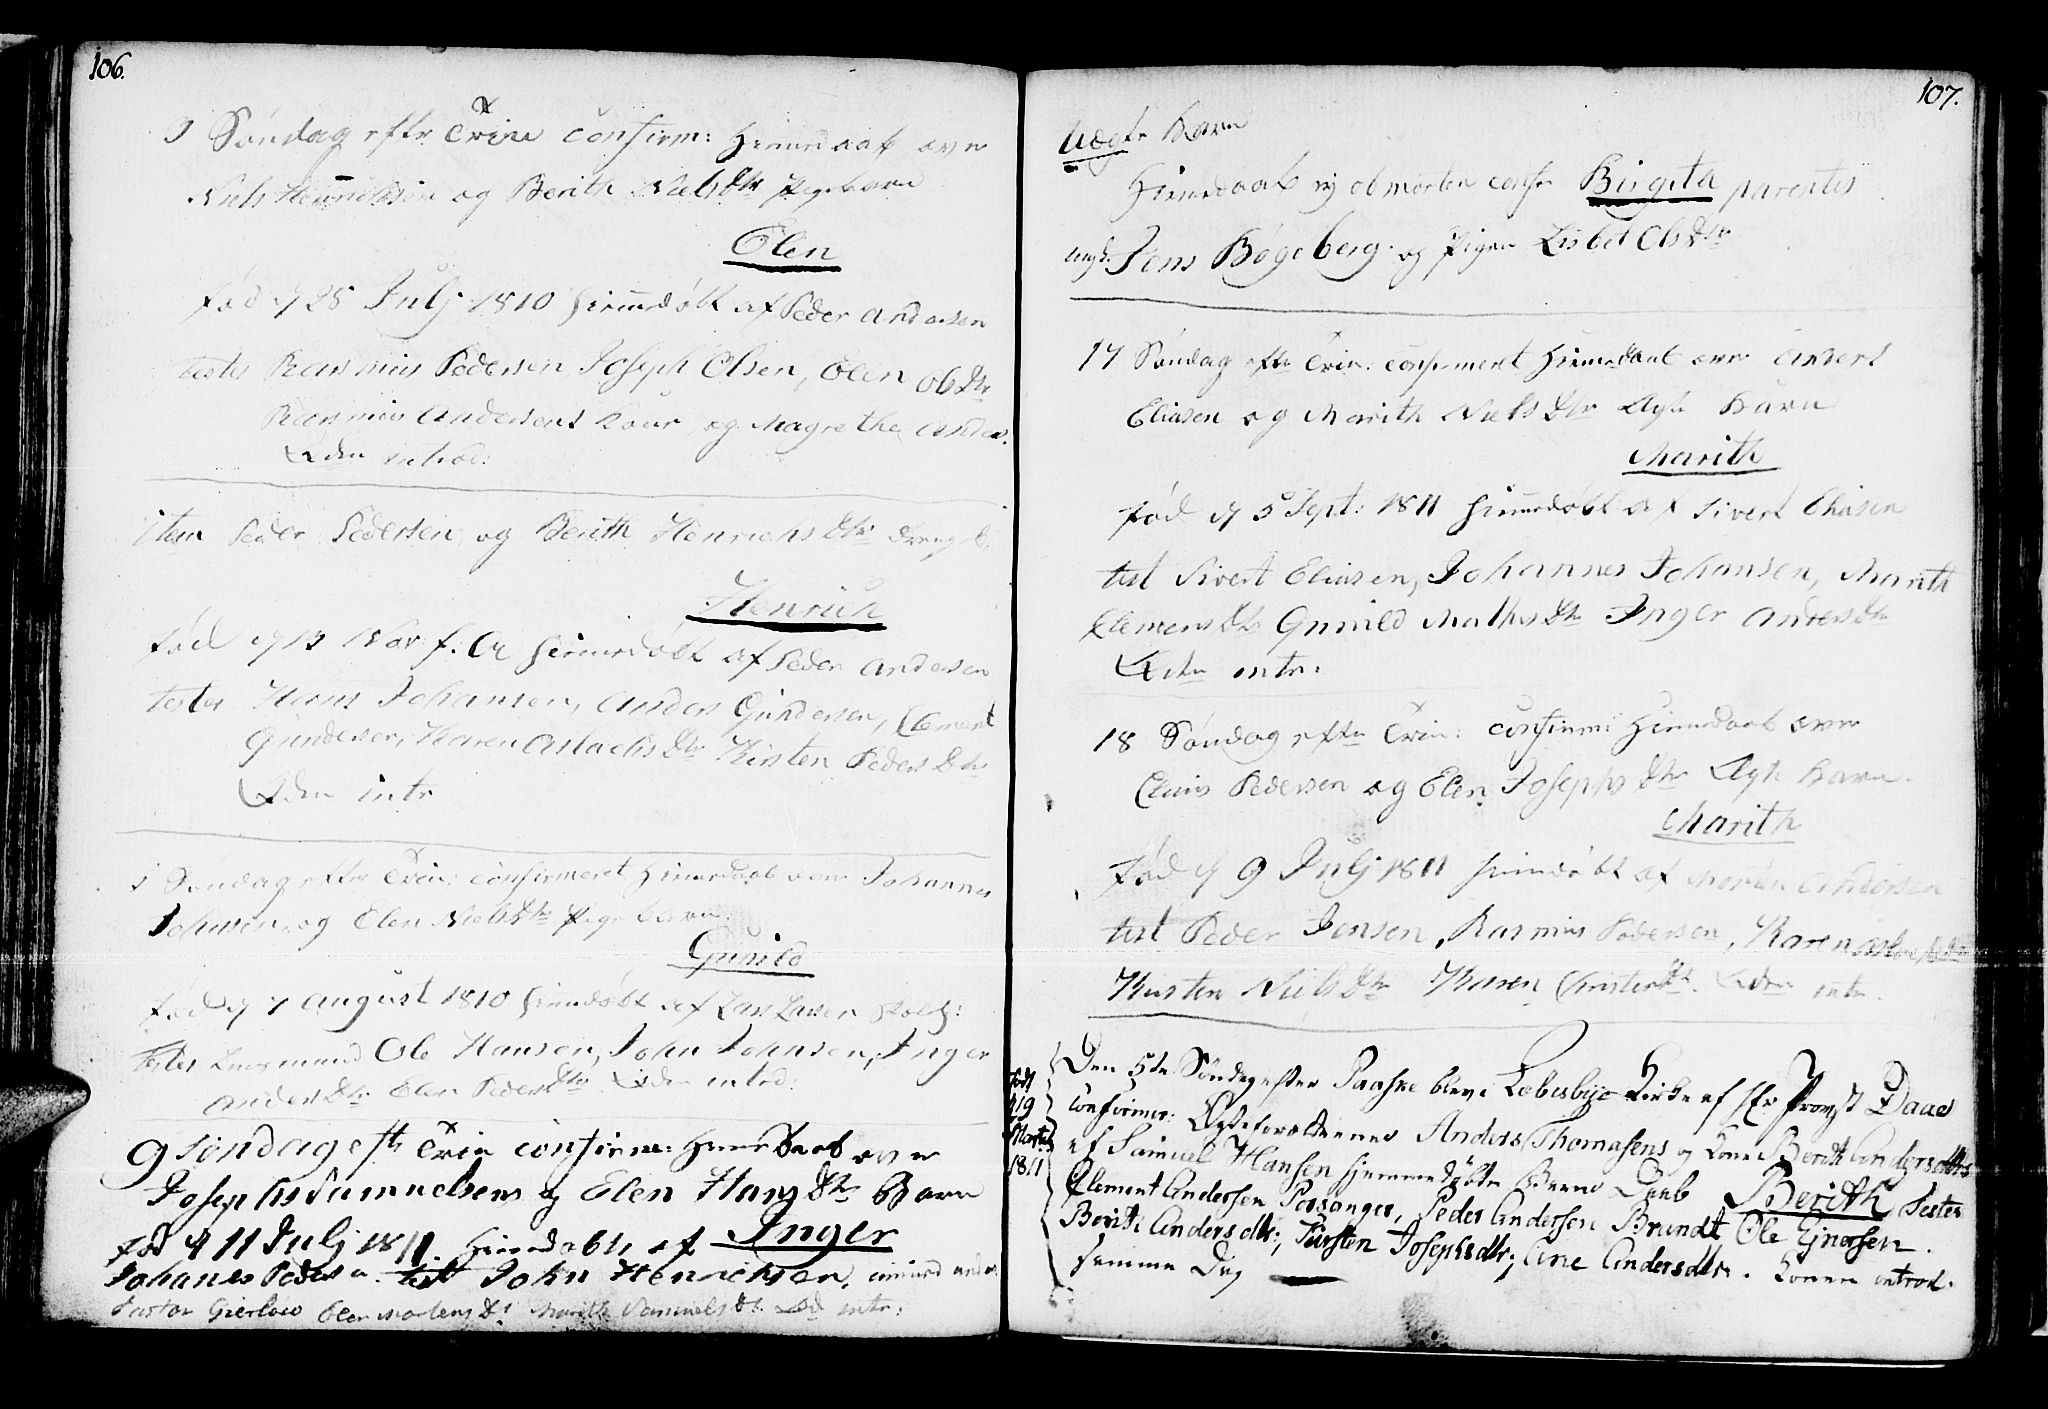 106.
Søndag efter Trin confirm: Hiemedaab over
Niels Henrichsen og Berith Nielsdtr Pigebarn
Elen
fød d 28 Julj 1810 hiemedøbt af Peder Andersen
testes Rasmus Pedersen Joseph Olsen, Elen Olsdtr
Rasmus Andersens Kone og Magrethe Anders.
introd:
item Peder Pedersen og Berith Henrichsdtr drengeb.
Henrich
fød d 13 Nov: f. A hiemedøbt af Peder Andersen
testes Hans Johansen, Anders Gundersen, Clement
Gundersen, Karen Aslachsdtr Kirsten Pedersdtr
intr
Søndag efter Trin: confirmeret Hiemedaab over Johannes
Johnsen og Elen Nielsdtr Pigebarn.
Gunild
fød d 7 August 1810 hiemdøbt af Lars Larsen
testes Ole Hansen, John Johnsen, Inger
Andersdtr Elen Pedersdtr introd.
9 Søndag eft Trin confirm: Hiemedaab over
Josephs Samuelsens og Elen Hansdtr Barn
fød d 11 Julj 1811. Hiemdøbt af Inger
Johanes Peders test John Henrichsen,
Pastor Gierløw Elen Mortensdt Marith Samuelsdt intr:
107.
Uægte Barn
Hiemedaab ob mortem conf Birgita parentes
ungk. Jens Bøgeberg og Pigen Lisbet Olsdtr
17 Søndag efter Trin: confirmeret Hiemedaab over Anders
Eliasen og Marith Nielsdtr Ægte Barn
Marith
fød d 5 Sept: 1811 hiemedøbt af Sivert Eliasen
test Sivert Eliasen, Johannes Johansen, Marith
Clemensdtr Gunild Mathisdtr Inger Andersdtr
intr:
18 Søndag efter Trin: confirm: Hiemedaab over
Claus Pedersen og Elen Josephsdtr Ægte Barn.
Marith
fød d 9 Julj 1811 hiemdøbt af Morten Andersen
test Peder Jensen, Rasmus Pedersen, Karen
Kirsten Nielsdtr Karen intr.
født
d 19
Martii
1811
Den 5te Søndag efter Paaske blev i Lebesbye Kirke af Hr Provst Daae
confirmer: Ægteforældrenes Anders Thomasens og Kone Berit Andersdtrs
af Samuel Hansen hjemmedøbte Barns Daab Berith Testes
Clement Andersen Porsanger, Peder Andersen Brandt Ole Gjersen.
Berit Andersdtr, Kirsten Josephsdtr, Ane Andersdtr. Konen introd:
samme Dag